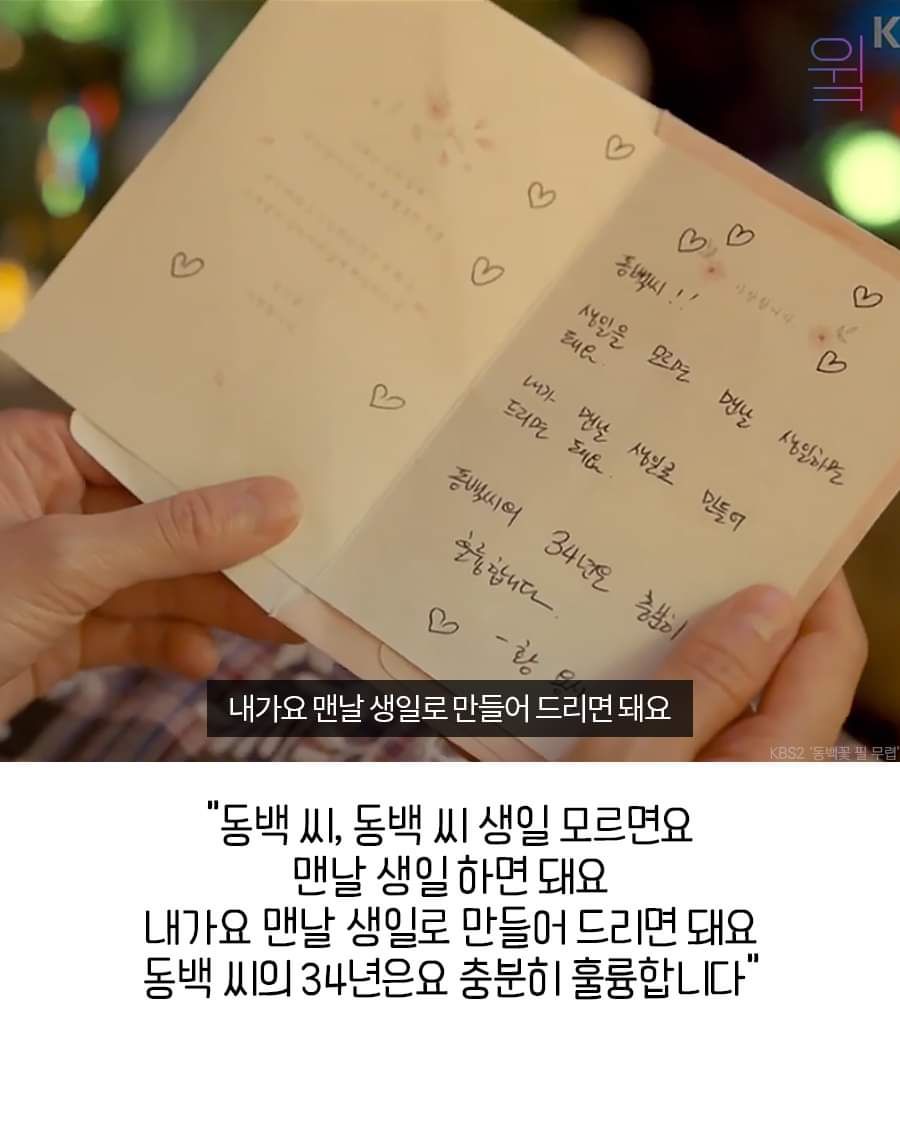 K
움
동백씨!!
생일을 모르면 맨날 생일하면
돼요.
내가 맨날 생일로 만들어
드리면 돼요.
동백씨의 34년은 충분히
훌륭합니다.
- 황
내가요 맨날 생일로 만들어 드리면 돼요
KBS2 '동백꽃 필 무렵'
"동백 씨, 동백 씨 생일 모르면요
맨날 생일 하면 돼요
내가요 맨날 생일로 만들어 드리면 돼요
동백 씨의 34년은요 충분히 훌륭합니다"